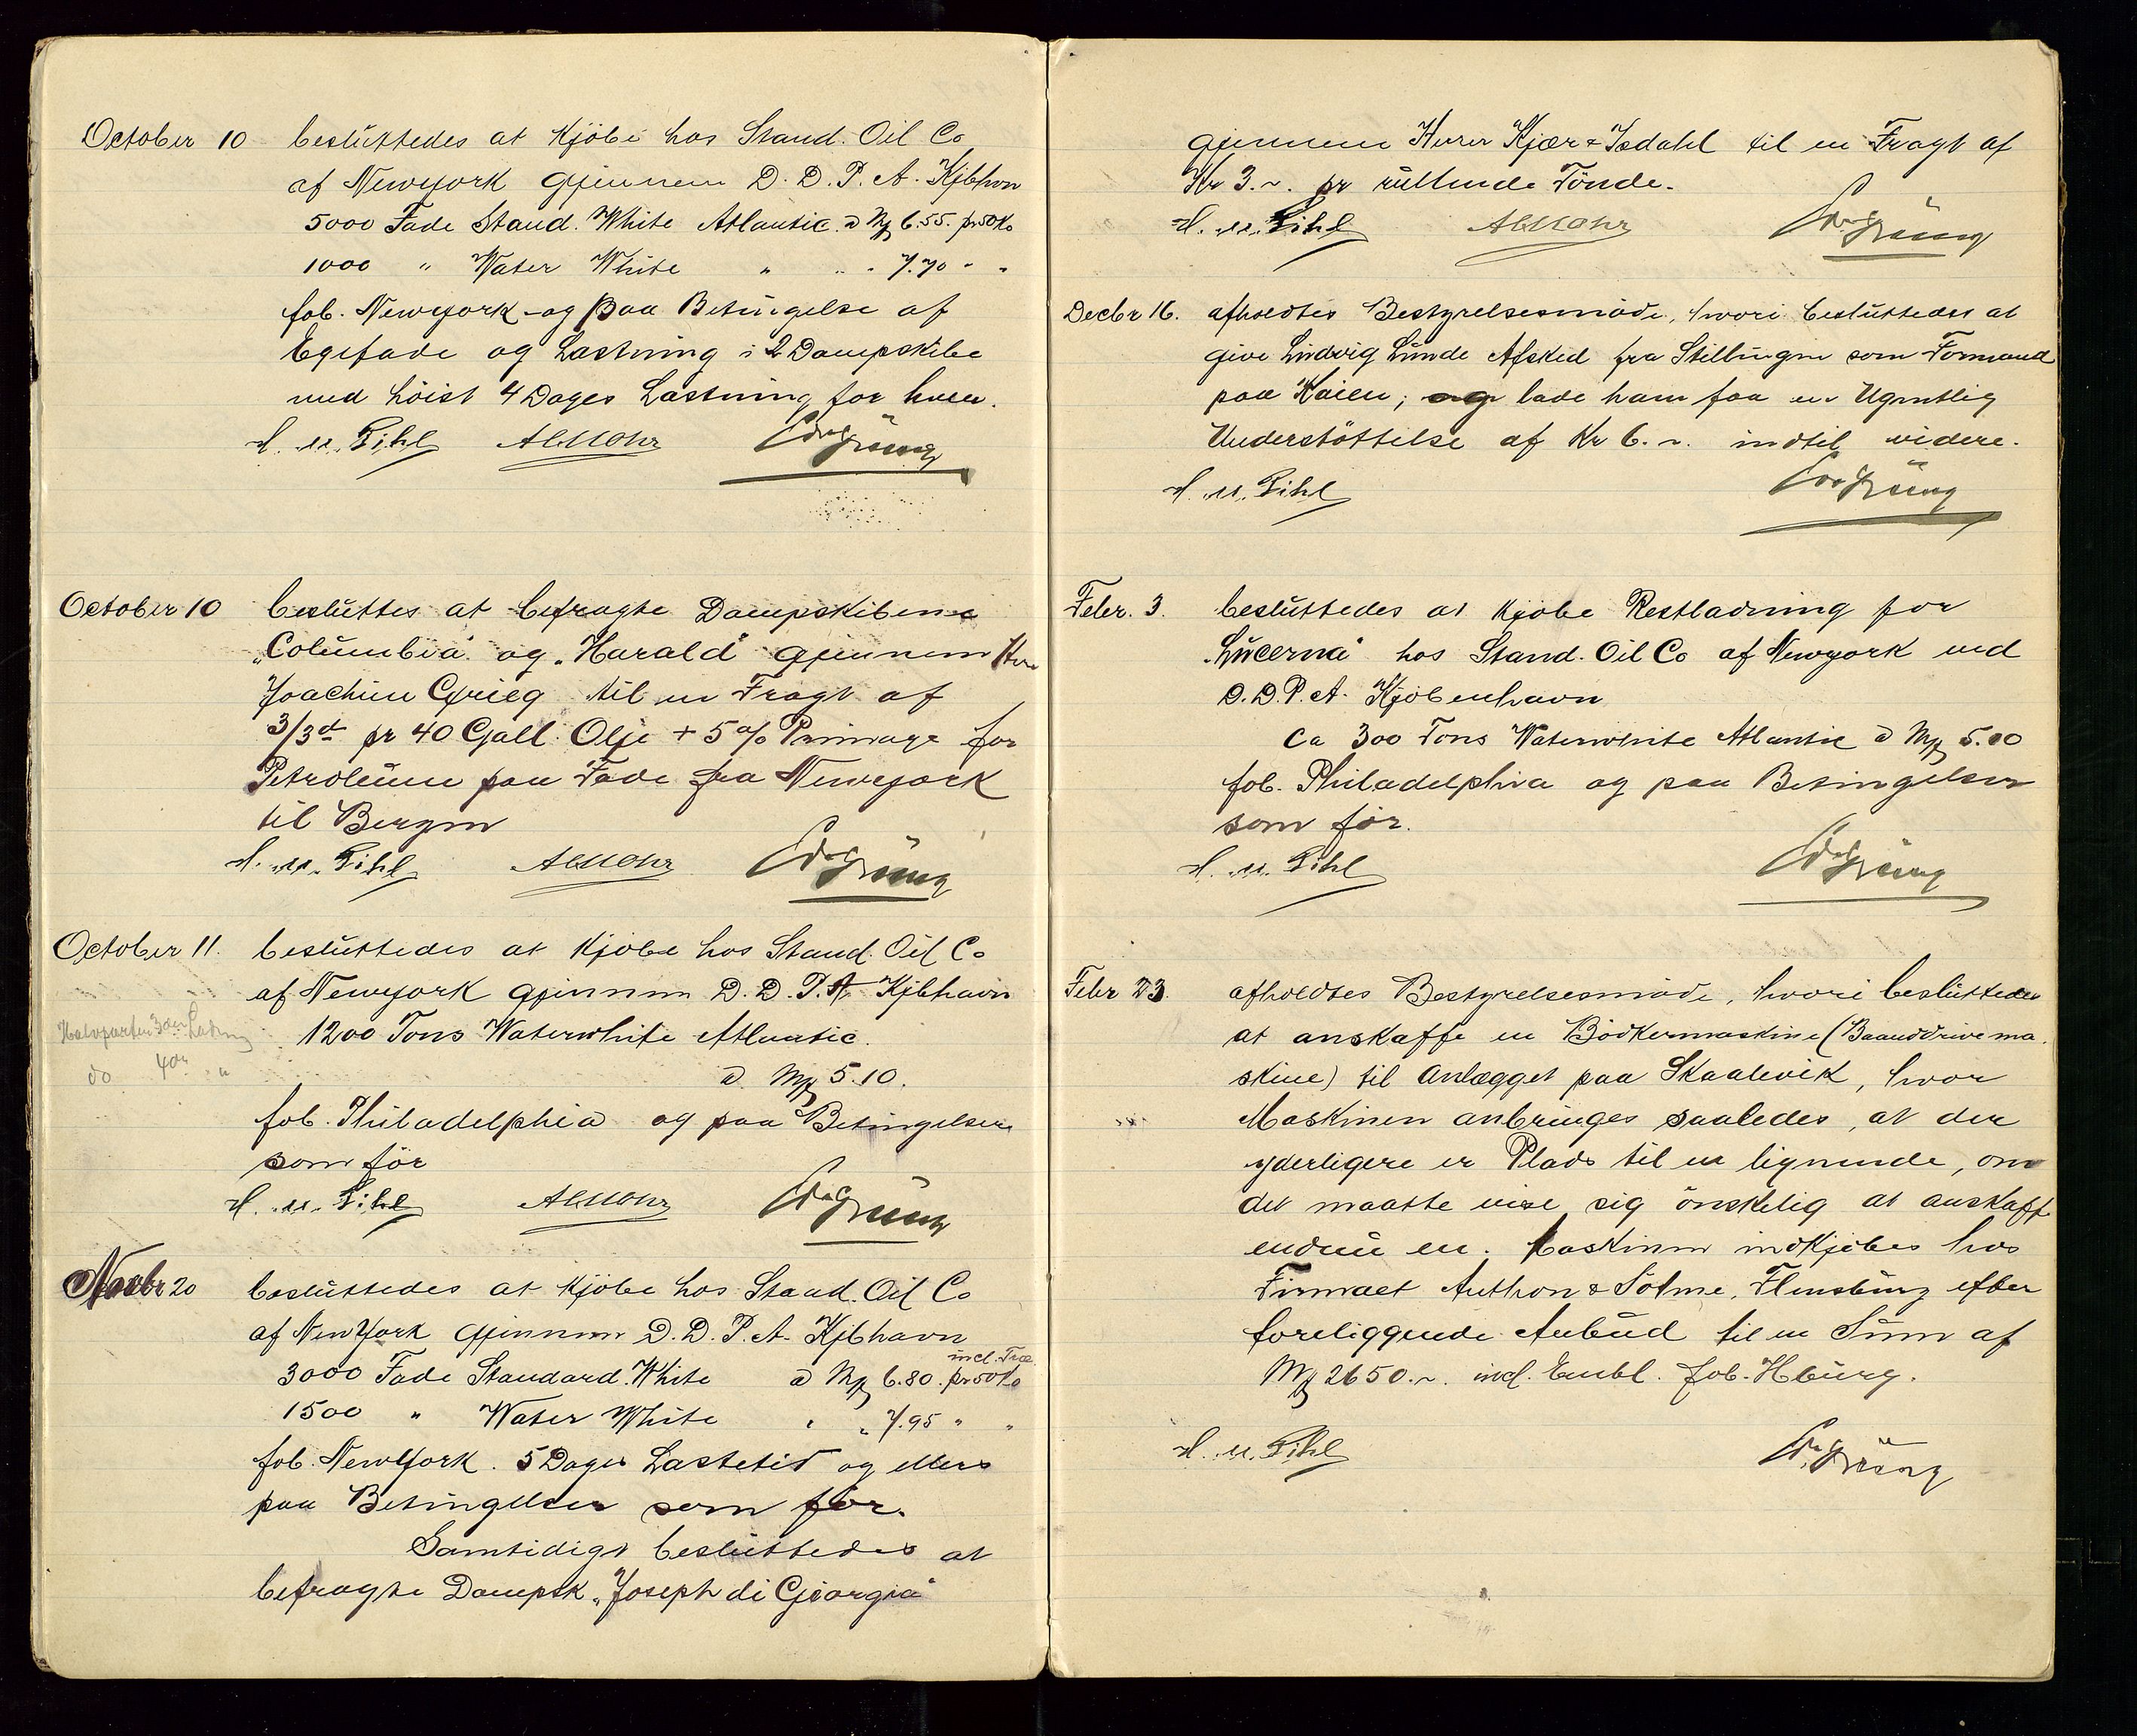 October 10 besluttedes at Kjöbe hos Stand. Oil Co
af Newyork gjennem D. D. P. A. Kjbhvn
5000 Fade Stand. White Atlantic à Mk 6.55. pr 50 Ko
1000 " Water White " " " 7.70 " "
fob. Newyork og paa Betingelse af
Egefade og Lastning i 2 Dampskibe
med höist 4 Dages Lastning for hver.
H. M. Pihl AMohr Edv Grüng
October 10 besluttes at befragte Dampskibene
„Columbia" og „Harald" gjennem Hr
Joachim Grieg til en Fragt af
3/3d pr 40 Gall. Olje + 5 % Primage for
Petroleum paa Fade fra Newyork
til Bergen
H. M. Pihl AMohr Edv Grüng
October 11. besluttedes at Kjöbe hos Stand. Oil Co
af Newyork gjennem D. D. P. A Kjbhavn
Halvparten 3die Ladning
1200 Tons Waterwhite Atlantic.
do 4de "
à Mk 5.10.
fob. Philadelphia og paa Betingelser
som för
H. M. Pihl AMohr Edv Grüng
Novbr 20 besluttedes at Kjöbe hos Stand. Oil Co
af New York gjennem D. D. P. A. Kjbhavn
incl. Træ
3000 Fade Standard White à Mk 6.80. pr 50 Ko
1500 " Water White " " 7.95 " "
fob. NewYork. 5 Dages Lastetid og ellers
paa Betingelser som för.
Samtidigt besluttedes at
befragte Dampsk. „Joseph di Giorgio"
gjennem Herrer Kjær & Isdahl til en Fragt af
Kr 3.~. pr rullende Tönde.
H. M. Pihl AMohr Edv Grüng
Decbr 16. afholdtes Bestyrelsesmöde, hvori besluttedes at
give Ludvig Lunde Afsked fra Stillingen som Formand
paa Kaien, og lade ham faa en Ugentlig
Understöttelse af Kr 6.~. indtil videre.
H. M. Pihl Edv Grüng
Febr. 3. besluttedes at Kjöbe Restladning for
„Lucerna" hos Stand. Oil Co af Newyork ved
D. D. P. A. Kjöbenhavn
Ca 300 Tons Waterwhite Atlantic à Mk 5.00
fob. Philadelphia og paa Betingelser
som för.
H. M. Pihl Edv Grüng
Febr 23. afholdtes Bestyrelsesmöde, hvori besluttedes
at anskaffe en Bödkermaskine (Baanddrivema-
skine) til Anlægget paa Skaalevik, hvor
Maskinen anbringes saaledes, at der
yderligere er Plads til en lignende, om
det maatte vise sig önskelig at anskaffe
endnu en. Maskinen indkjöbes hos
Firmaet Anthon & Sötme, Flensburg efter
foreliggende Anbud til en Sum af
Mk 2650.~. incl. Embl. fob. Hburg.
H. M. Pihl Edv Grüng